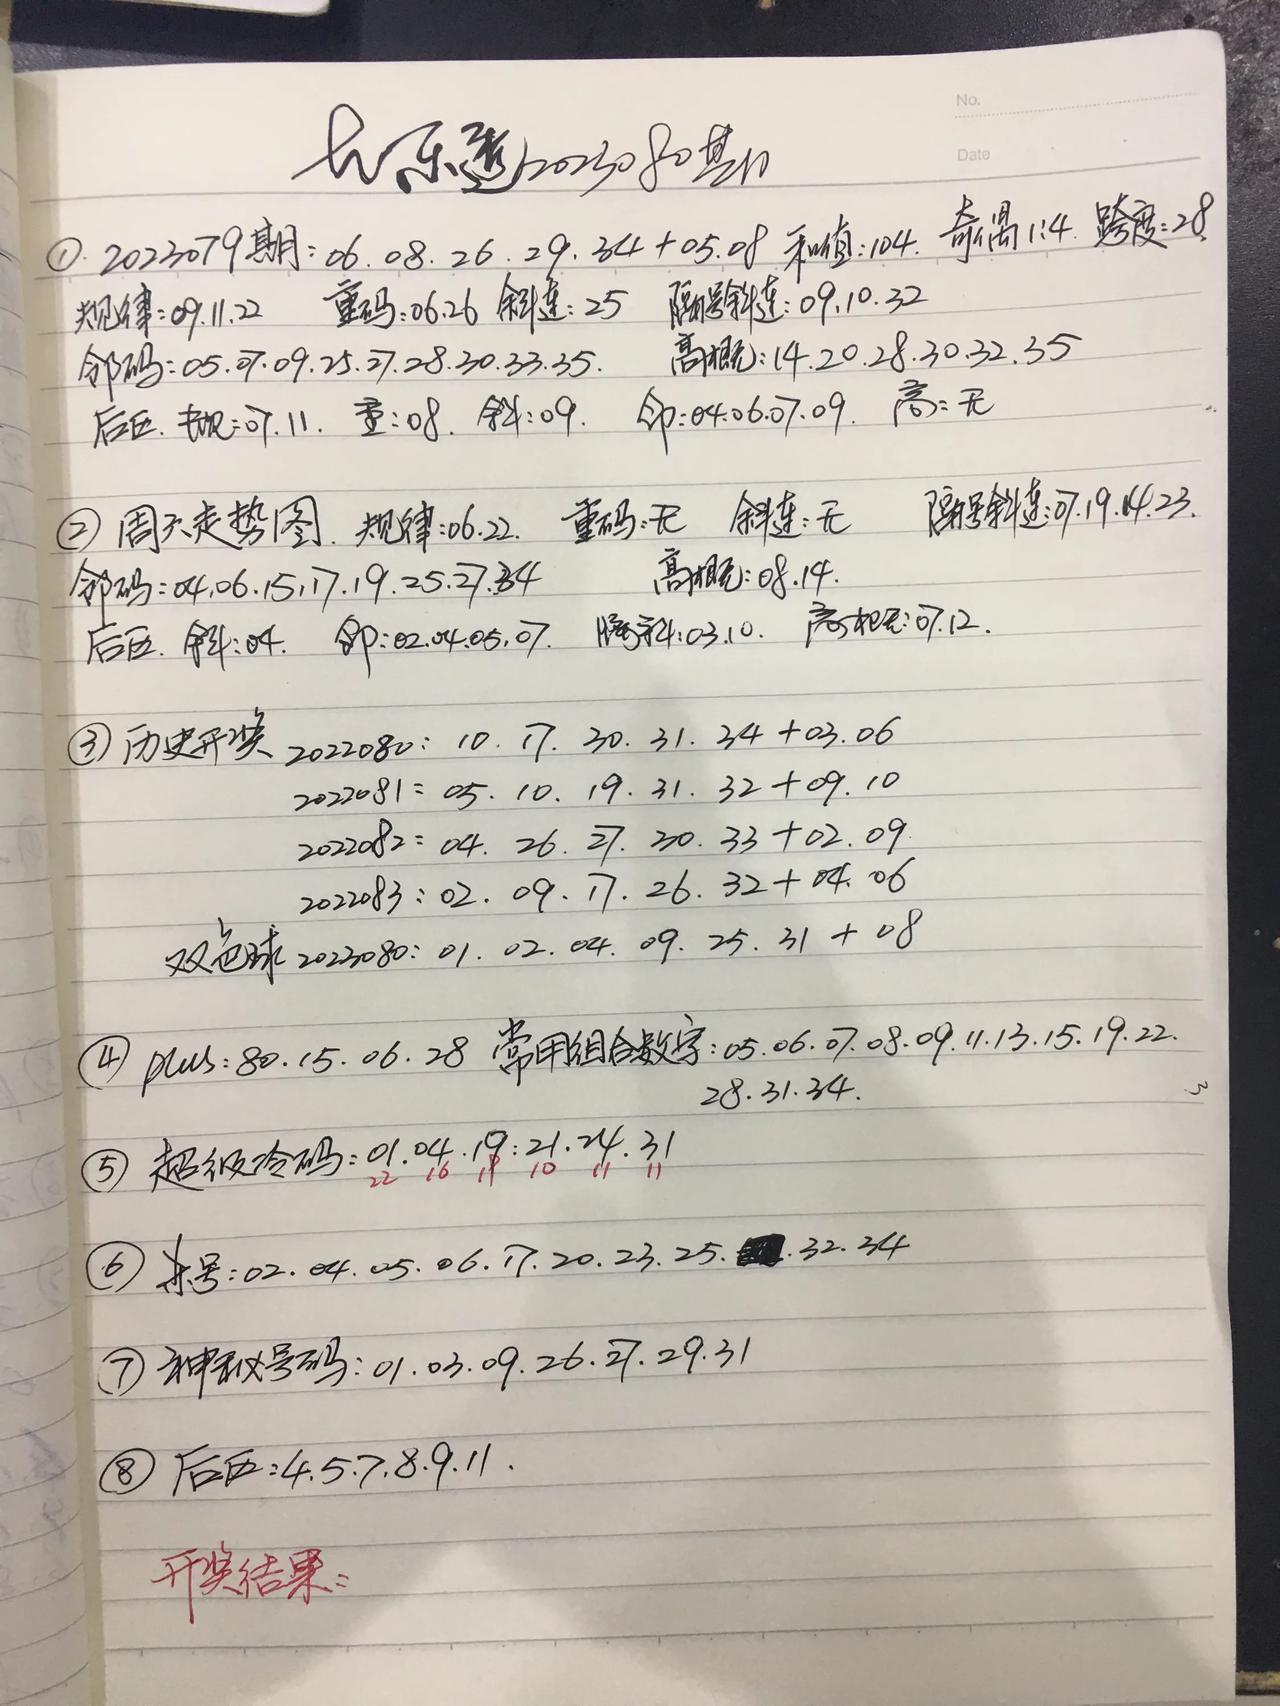 No.
大乐透2023080期
Date
① 2023079期:06.08.26.29.34+05.08 和值:104. 奇偶1:4. 跨度:28.
规律:09.11.22 重码:06.26 斜连:25 隔号斜连:09.10.32
邻码:05.07.09.25.27.28.30.33.35. 高概:14.20.28.30.32.35
后区. 规:07.11. 重:08. 斜:09. 邻:04.06.07.09. 高:无
② 周六走势图. 规律:06.22. 重码:无 斜连:无 隔号斜连:07.19.14.23.
邻码:04.06.15.17.19.25.27.34 高概:08.14.
后区. 斜:04. 邻:02.04.05.07. 隔斜:03.10. 高概:07.12.
③ 历史开奖 2022080: 10. 17. 30. 31. 34 +03.06
2022081: 05. 10. 19. 31. 32 +09. 10
2022082: 04. 26. 27. 30. 33 +02. 09
2022083: 02. 09. 17. 26. 32 + 04. 06
双色球 2023080: 01. 02. 04. 09. 25. 31 + 08
④ plus:80.15.06.28 常用组合数字:05.06.07.08.09.11.13.15.19.22.
28.31.34.
3
⑤ 超级冷码:01.04.19.21.24.31
22 16 11 10 11 11
⑥ 杀号:02.04.05.06.17.20.23.25. .32.34
⑦ 神秘号码:01.03.09.26.27.29.31
⑧ 后区:4.5.7.8.9.11.
开奖结果: